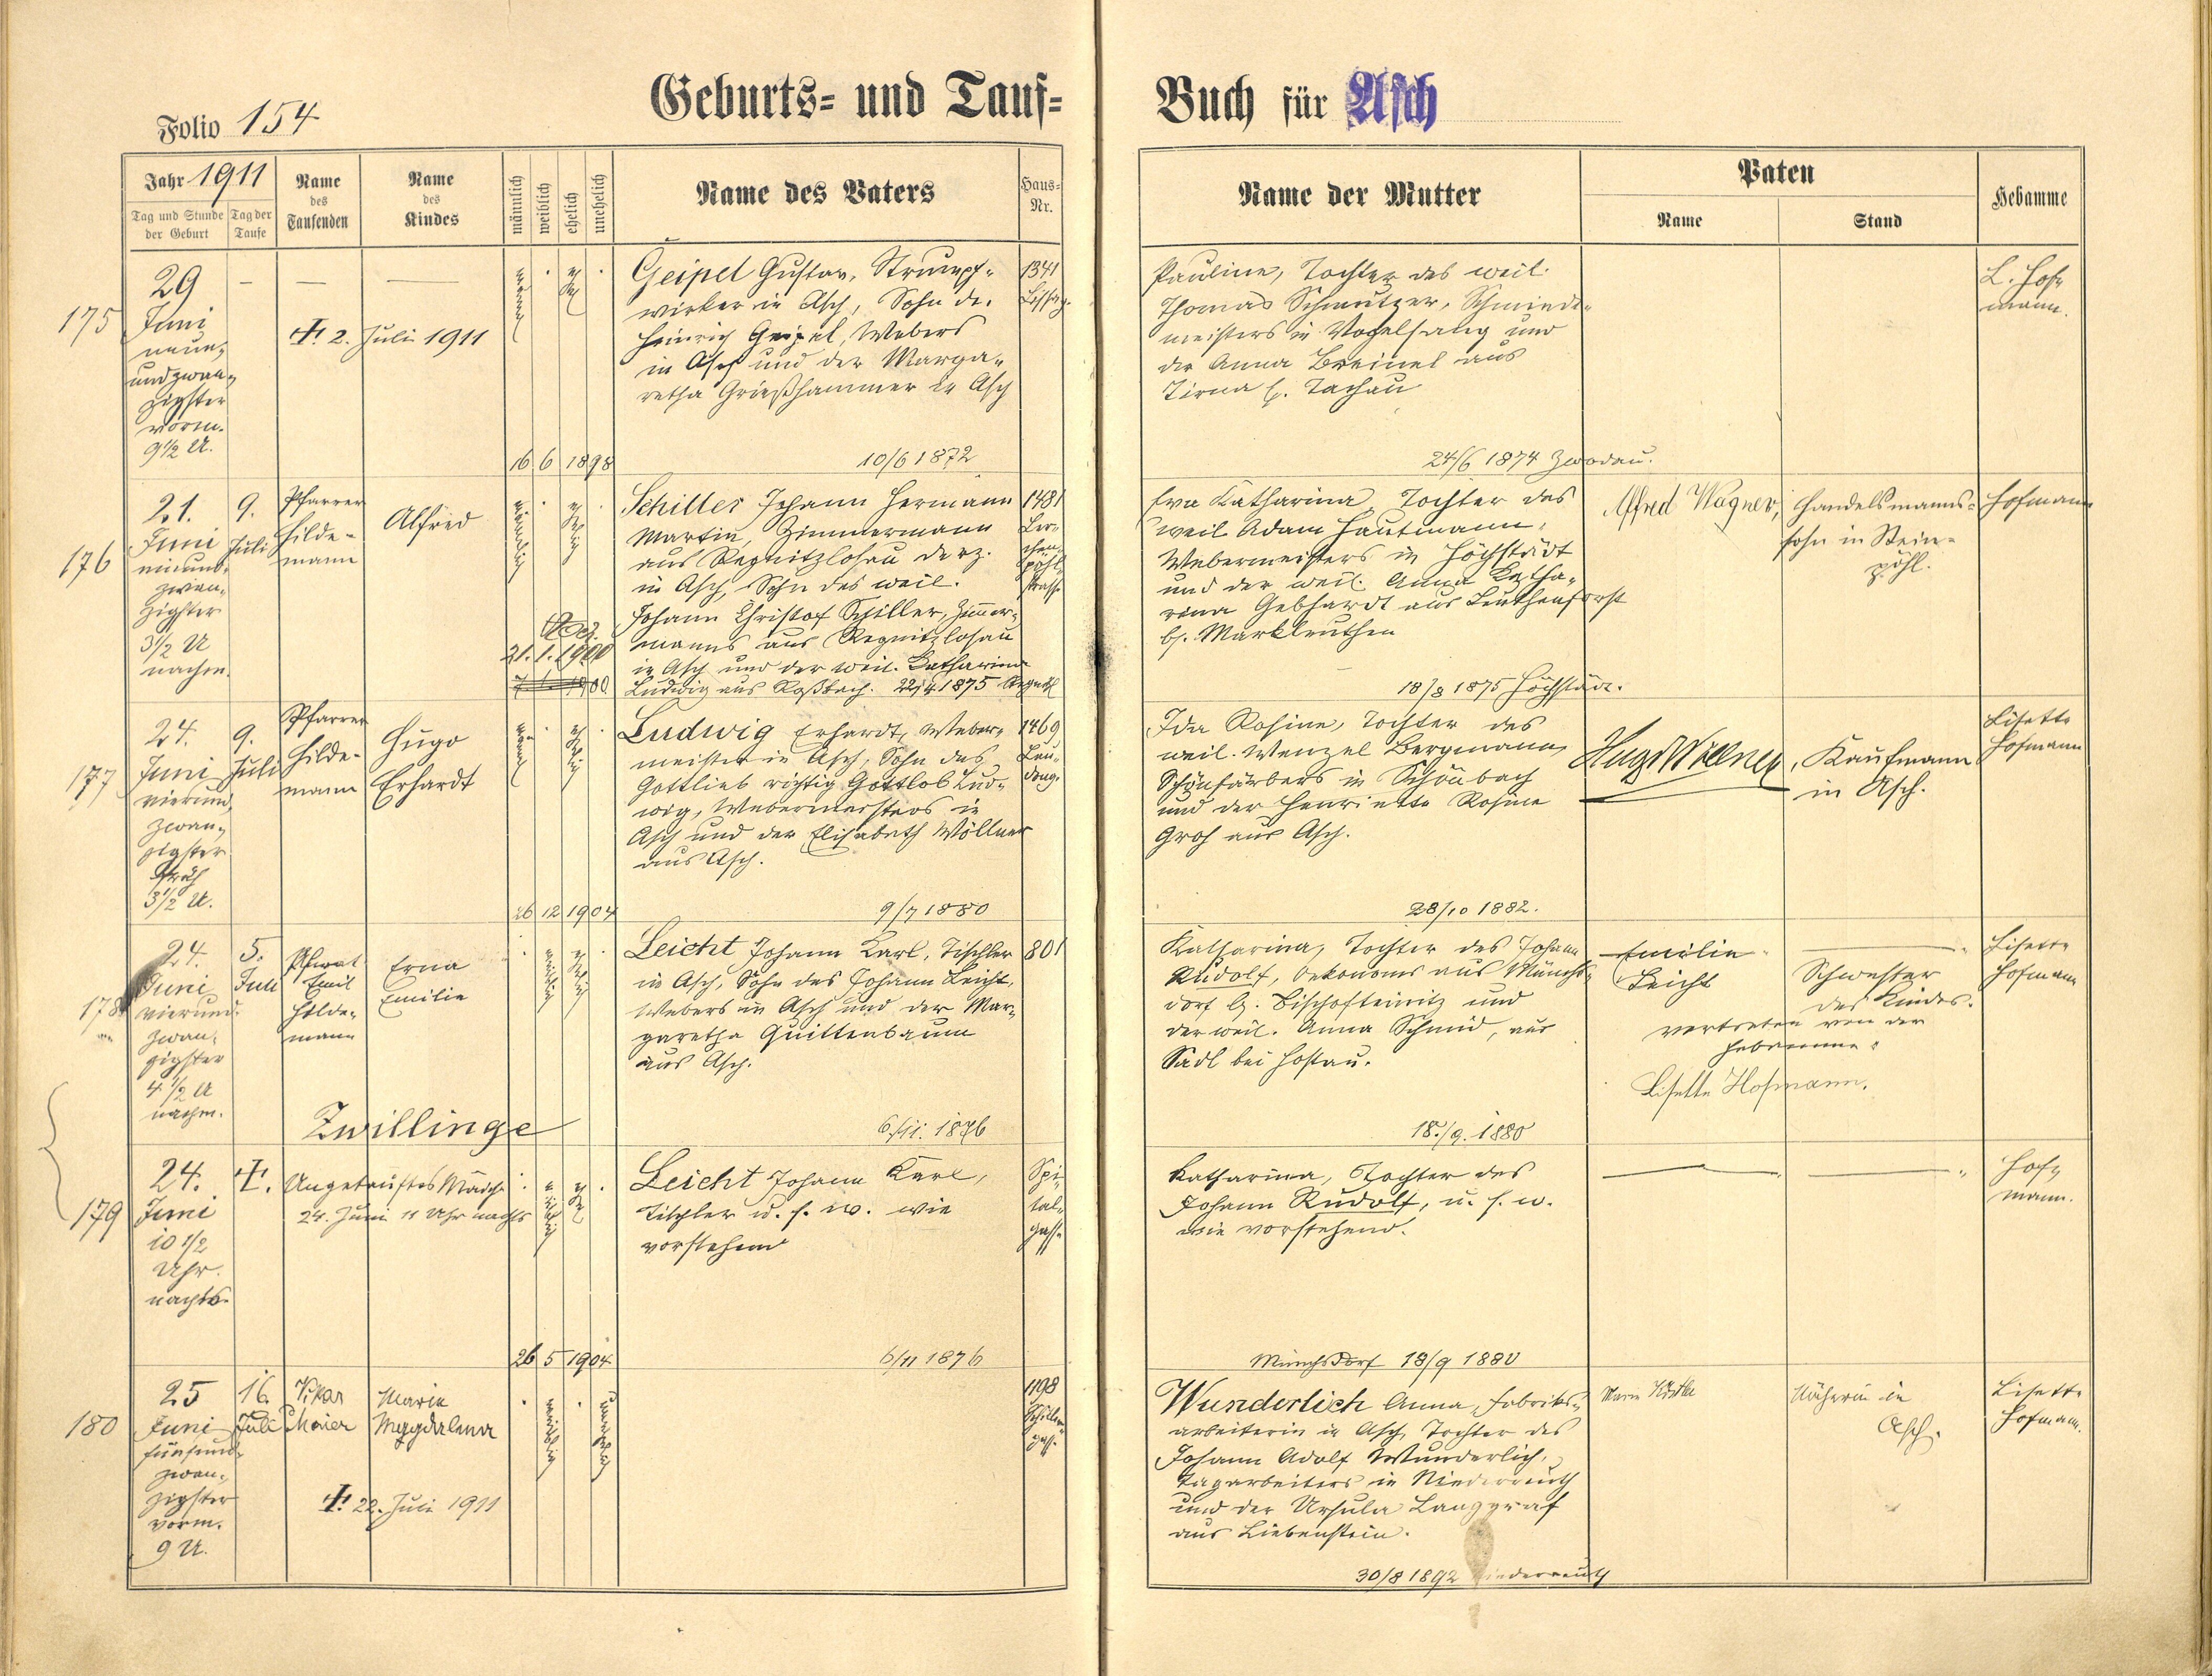 Geburts- und Tauf-
Buch für Asch
Folio 154
Jahr 1911
Tag und Stunde der Geburt
Tag der Taufe
Name des Taufenden
Name des Kindes
männlich
weiblich
ehelich
unehelich
Name des Vaters
Haus-Nr.
Name der Mutter
Paten
Name
Stand
Hebamme
175
29
Juni
neun-
undzwan-
zigster
vorm.
9½ U.
— — —
✝ 2. Juli 1911
männl.
ehel.
16 6 1898
Geipel Gustav, Strumpf-
wirker in Asch, Sohn de.
Heinrich Geipel, Webers
in Asch und der Marga-
retha Grießhammer in Asch
10/6 1872
1341
Pauline, Tochter des weil.
Thomas Schmutzer, Schmiede-
meisters in Vogelsang und
der Anna Breinel aus
Tirna b. Tachau
24/6 1874 Zwodau.
L. Hof-
mann.
176
21.
Juni
einund-
zwan-
zigster
3½ U
nachm.
9.
Juli
Pfarrer
Hilde-
mann
Alfred
männlich
ehelich
21. 1. 1900
Schiller Johann Hermann
Martin, Zimmermann
aus Regnitzlosau derz.
in Asch, Sohn des weil.
Johann Christof Schiller, Zimmer-
manns aus Regnitzlosau
in Asch und der weil. Katharina
Ludwig aus Roßbach. 22/4 1875 Regnitzl
1481
Ler-
chen-
pöhl-
strasse
Eva Katharina, Tochter des
weil. Adam Hautmann,
Webermeisters in Höchstädt
und der weil. Anna Katha-
rina Gebhardt aus Leuthenforst
b. Marktleuthen
18/8 1875 Höchstädt.
Alfred Wagner,
Handelsmanns-
sohn in Stein-
pöhl.
Hofmann
177
24.
Juni
vierund-
zwan-
zigster
früh
3½ U.
9.
Juli
Pfarrer
Hilde-
mann
Hugo
Erhardt
männl.
ehelich
26 12 1904
Ludwig Erhardt, Weber-
meister in Asch, Sohn des
Gottlieb richtig Gottlob Lud-
wig, Webermeisters in
Asch und der Elisabeth Wöllner
aus Asch.
9/7 1880
1469
Ida Rosine, Tochter des
weil. Wenzel Bergmann,
Schönfärbers in Schönbach
und der Henriette Rosine
Groh aus Asch.
28/10 1882.
Hugo Wollner,
Kaufmann
in Asch.
Lisette
Hofmann
178
24.
Juni
vierund-
zwan-
zigster
4½ U
nachm.
5.
Juli
Emil
Hilde-
mann
Erna
Emilie
weiblich
ehelich
Zwillinge
Leicht Johann Karl, Tischler
in Asch, Sohn des Johann Leicht,
Webers in Asch und der Mar-
garetha Quittenbaum
aus Asch.
6/11. 1876
801
Katharina, Tochter des Johann
Rudolf, Oekonoms aus Münchs-
dorf b. Bischofteinitz und
der weil. Anna Schmid, aus
Sadl bei Hostau.
18./9. 1880
Emilie
Leicht
Schwester
des Kindes.
vertreten von der
Hebamme:
Lisette Hofmann.
Lisette
Hofmann
179
24.
Juni
10½
Uhr
nachts.
✝.
Ungetauftes Mädch.
24. Juni 11 Uhr nachts
weiblich
ehel.
26 5 1904
Leicht Johann Karl,
Tischler u. s. w. wie
vorstehend
6/11 1876
Spi-
tal-
gasse
Katharina, Tochter des
Johann Rudolf, u. s. w.
wie vorstehend.
Münchsdorf 18/9 1880
Hof-
mann.
180
25
Juni
fünfund-
zwan-
zigster
vorm.
9 U.
16.
Juli
Vikar
Maier
Marie
Magdalena
✝ 22. Juli 1911
weiblich
unehelich
1198
Schiller-
gasse
Wunderlich Anna, Fabriks-
arbeiterin in Asch, Tochter des
Johann Adolf Wunderlich,
Tagarbeiters in Niederreuth
und der Ursula Langgraf
aus Liebenstein.
30/8 1892 Niederreuth
Näherin in
Asch.
Lisette
Hofmann.